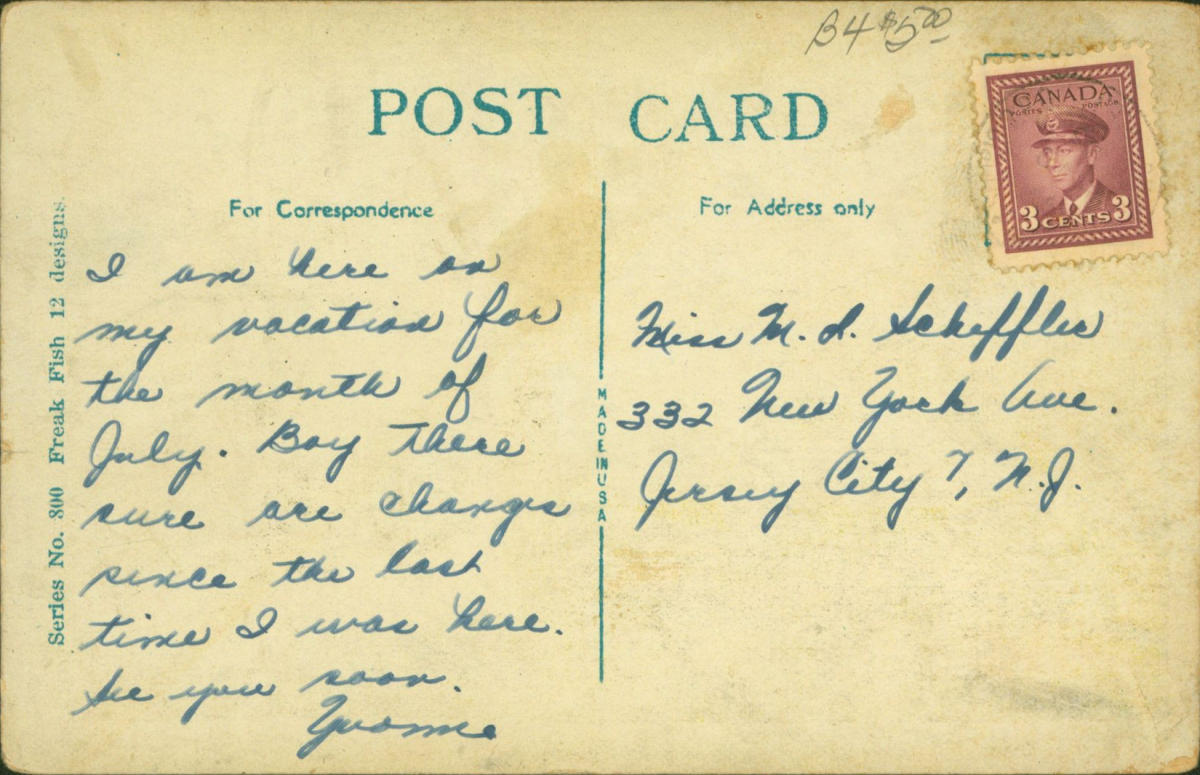 B4 $5.00
POST CARD
CANADA
POSTES POSTAGE
3 CENTS 3
For Correspondence
For Address only
Series No. 300 Freak Fish 12 designs.
I am here on
my vacation for
the month of
July. Boy there
sure are changes
since the last
time I was here.
See you soon.
Yvonne
MADE IN USA
Miss M. L. Scheffler
332 New York Ave.
Jersey City 7, N.J.